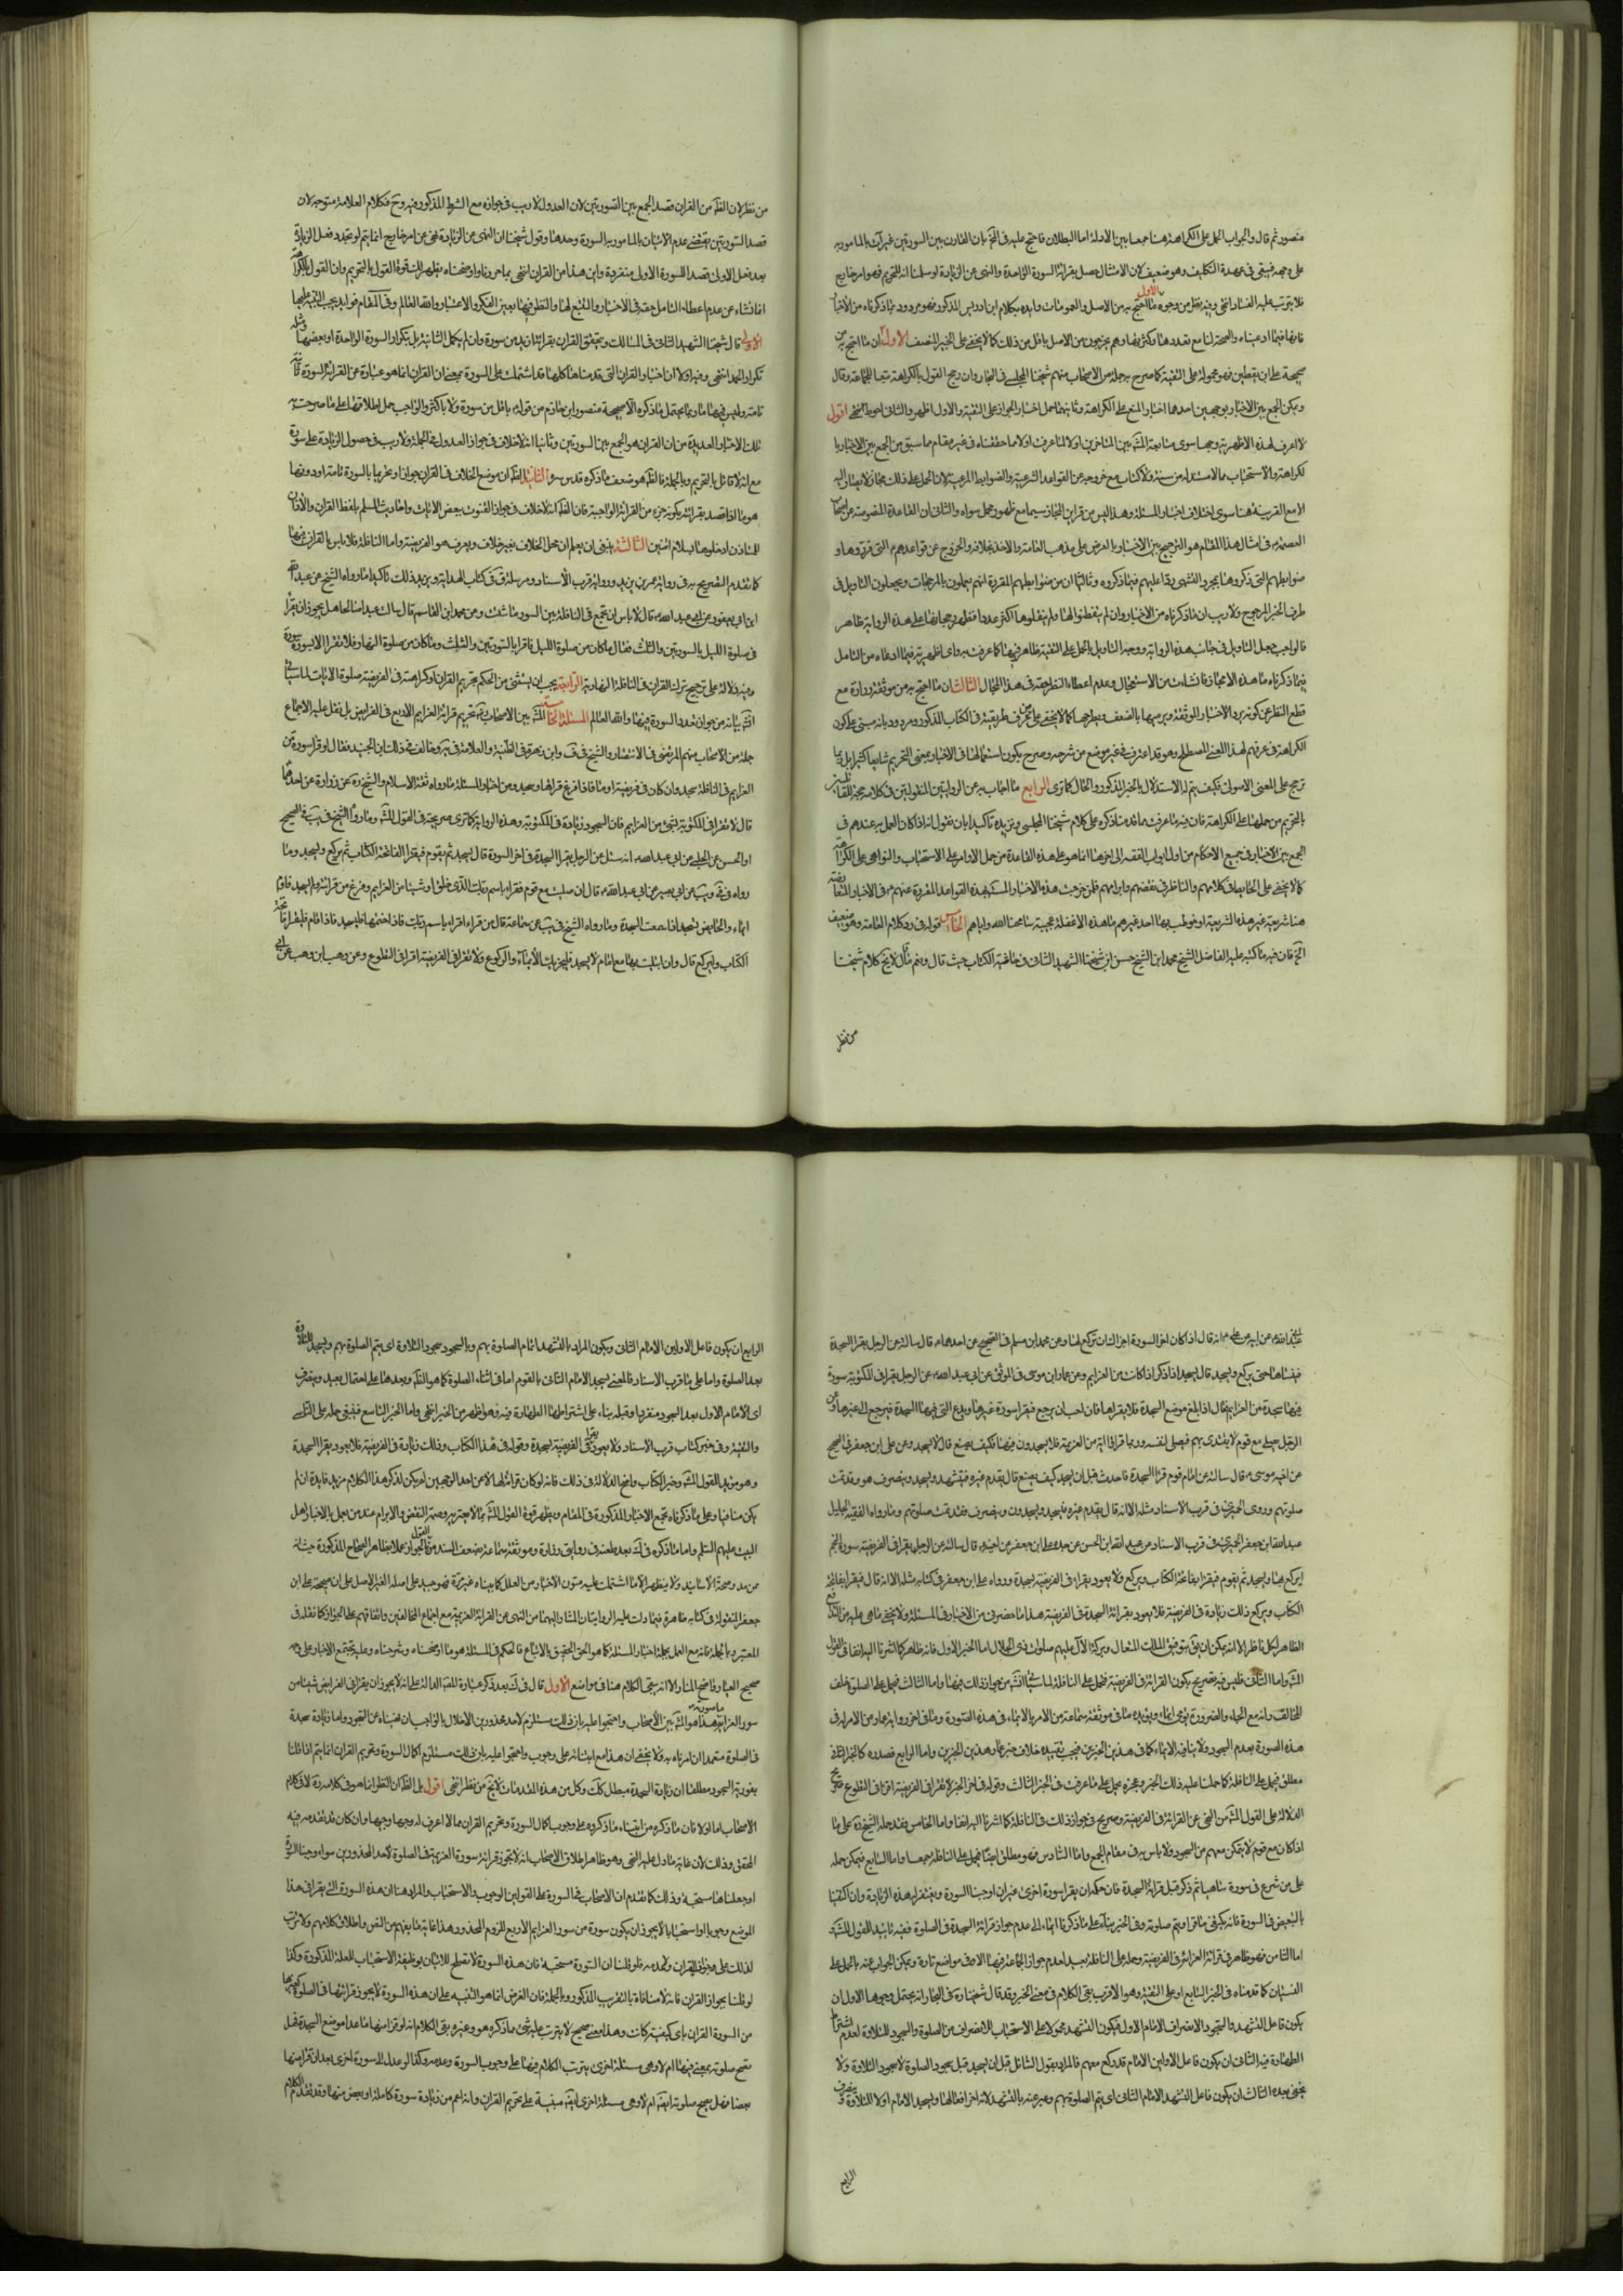 منصور ثم قال والجواب الحمل على الكراهة هنا جمعا بين الادلة اما البطلان فاحتج عليه في المخ بان القارن بين السورتين غير آت بالمامور به
على وجهه فيبقى في عهدة التكليف وهو ضعيف لان الامتثال حصل بقرائة السورة الواحدة والنهى عن الزيادة لو سلمنا انه للتحريم فهو امر خارج
فلا يترتب عليه الفساد انتهى وفيه نظر من وجوه الاول ما احتج به من الاصل والعمومات وايده بكلام ابن ادريس المذكور فهو مردود بما ذكرناه من الاخبار
فانها فيما ادعيناه واضحة لنا مع تعددها وكثرتها وهم يخرجون من الاصل باقل من ذلك كما لا يخفى على الخبير المنصف الاول ان ما احتج به من
صحيحة على ابن يقطين فهو محمولة على التقية كما صرح به جملة من الاصحاب منهم شيخنا المجلسى في البحار وان رجح القول بالكراهة تبعا للجماعة وقال
ويمكن الجمع بين الاخبار بوجهين احدهما اخبار المنع على الكراهة وثانيهما حمل اخبار الجواز على التقية والاول اظهر والثانى احوط انتهى اقول
لا اعرف لهذه الاظهرية وجها سوى متابعة المشهور بين المتاخرين اولا لما عرفت اولا مما حققناه في غير مقام مما سبق من الجمع بين الاخبار با
لكراهة والاستحباب مما لا مستند له من سنة ولا كتاب مع خروجه عن القواعد الشرعية والضوابط المرعية لان الحمل على ذلك مجاز لا يصار اليه
الا مع القرينة وهنا سوى اختلاف الاخبار وهذا ليس من قراين المجاز سيما مع ظهور محمل سواه والثانى ان القاعدة المنصوصة عن اصحاب
العصمة في امثال هذا المقام هو الترجيح بين الاخبار بالعرض على مذهب العامة والاخذ بخلافه والخروج عن قواعدهم التى قرروها و
ضوابطهم التى ذكروها بمجرد التشهى ردا عليهم فيما ذكروه وثالثا ان من ضوابطهم المقررة انهم يعملون بالمرجحات ويجعلون التاويل في
طرف الخبر المرجوح ولا ريب ان ما ذكرناه من الاخبار وان لم يتفطنوا لها ولم ينقلوها اكثر عددا فظهر رجحانها على هذه الرواية ظاهر
فالواجب جعل التاويل في جانب هذه الرواية ووجه التاويل بالحمل على التقية ظاهر فيها كما عرفت به واى اظهرية فيما ادعاه من التامل
فيما ذكرناه ما هذه الا مجازفة نشات من الاستعجال وعدم اعطاء النظر حقه في هذا المجال الثالث ان ما احتج به من موثقة زرارة مع
قطع النظر عن كونه يرد الاخبار الموثقة ويرميها بالضعف ويطرحها كما لا يخفى على من عرف طريقته في الكتاب المذكور مردود بانه مبنى على كون
الكراهة في عرفهم لهذا المعنى المصطلح وهو قد اعترف في غير موضع من شرحه وصرح بكون استعمالها في الاخبار بمعنى التحريم شايعا كثيرا بل ربما
ترجح على المعنى الاصولى فكيف يتم له الاستدلال بالخبر المذكور والحال كما ترى الرابع ما اجاب به عن الروايتين المنقولتين في كلامه حجة للقائلين
بالتحريم من حملها على الكراهة فان فيه ما عرفت مما قدمنا ذكره على كلام شيخنا المجلسى ونزيده تاكيدا بان نقول انه اذا كان العمل به عندهم في
الجمع بين الاخبار في جميع الاحكام من اول ابواب الفقه الى اخرها انما هو على هذه القاعدة من حمل الاوامر على الاستحباب والنواهى على الكراهة
كما لا يخفى على الحابط في كلامهم والناظر في نقضهم وابرامهم فلمن خرجت هذه الاخبار المستفيضة القواعد المقررة عنهم في الاخبار المتعارضة
هنا شريعة غير هذه الشريعة او خوطب بها احد غيرهم ما هذه الا غفلة عجيبة سامحنا الله واياهم الخامس قوله في رد كلام العلامة وهو ضعيف
الخ فان فيه ما كتبه عليه الفاضل الشيخ محمد ابن الشيخ حسن ابن شيخنا الشهيد الثانى في حاشية الكتاب حيث قال ونعم ما قال لا يخ كلام شيخنا
من نظر
من نظر لان الظاهر من القران قصد الجمع بين السورتين لان العدول لا ريب في جوازه مع الشرط المذكور فيه وح فكلام العلامة متوجه لان
قصد السورتين يقتضى عدم الاتيان بالمامور به السورة وحدها وقول شيخنا ان النهى عن الزيادة نهى عن امر خارج انما يتم لو تجدد فعل الزيادة
بعد فعل الاولى قصد السورة الاولى منفردة واين هذا من القران انتهى بما حررناه واوضحناه يظهر لك قوة القول بالتحريم وان القول بالكراهة
انما نشاء عن عدم اعطاء التامل حقه في الاخبار والتتبع لها والنظر فيها بعين الفكر والاعتبار والله العالم وفي المقام فوايد يجب التنبيه عليها
الاولى قال شيخنا الشهيد الثانى في المسالك ويتحقق القران بقرائة ازيد من سورة وان لم يكمل الثانية بل بتكرار السورة الواحدة او بعضها ومثله
تكرار الحمد انتهى وفيه اولا ان اخبار القران التى قدمناها كلها قد اشتملت على السورة بمعنى ان القران انما هو عبارة عن القرائة السورة ثانية
تامة وليس فيها ما ربما يحتمل ما ذكره الا صحيحة منصور ابن حازم من قوله باقل من سورة ولا باكثر والواجب حمل اطلاقها على ما صرحت به
تلك الاخبار العديدة من ان القران هو الجمع بين السورتين وثانيا انه لا خلاف في جواز العدول في الجملة ولا ريب في حصول الزيادة على سورة
مع انه لا قائل بالتحريم وبالجملة فالظاهر هو ضعف ما ذكره قدس سره الثانية الظاهر ان موضع الخلاف في القران جوازا وتحريما بالسورة تامة او دونها
هو ما اذا قصد بقرائته كونه جزء من القرائة الواجبة فان الظاهر انه لا خلاف في جواز القنوت ببعض الايات واجابة المسلم بلفظ القران والاذن
للمستاذن ادخلوها بسلام امنين الثالثة ينبغى ان يعلم ان محل الخلاف بغير خلاف ويعرف هو الفريضة واما النافلة فلا باس بالقران فيها
كما تقدم التصريح به في رواية عمر بن يزيد ورواية قرب الاسناد ومرسلة في كتاب الهداية ويزيد ذلك تاكيدا ما رواه الشيخ عن عبد الله
ابن ابى يعفور عن ابى عبد الله قال لا باس ان تجمع في النافلة بين السور ما شئت وعن محمد ابن القاسم قال سالت عبدا صالحا هل يجوز ان يقرأ
في صلوة الليل بالسورتين والثلاث فقال ما كان من صلوة الليل فاقرأ بالسورتين والثلث وما كان من صلوة النهار فلا تقرأ الا بسورة سورة
وفيه دلالة على ترجيح ترك القران في النافلة النهارية الرابعة يجب ان يستثنى من الحكم بتحريم القران او كراهته في الفريضة صلوة الايات لما سياتى
انشاء الله من جواز تعدد السورة فيها والله العالم المسئلة الخامسة المشهور بين الاصحاب تحريم قرائة العزايم الاربع في الفرايض بل نقل عليه الاجماع
جملة من الاصحاب منهم المرتضى في الانتصار والشيخ في ف وابن زهرة في الغنية والعلامة في وخالف في ذلك ابن الجنيد فقال لو قرأ سورة من
العزايم في النافلة سجد وان كان في فريضة اومأ فاذا فرغ قراها وسجد ومن اخبار المسئلة ما رواه ثقة الاسلام والشيخ عن زرارة عن احدهما
قال لا تقرأ في المكتوبة بشئ من العزايم فان السجود زيادة في المكتوبة وهذه الرواية كما ترى صريحة في القول المشهور وما رواه الشيخ في يب في الصحيح
او الحسن عن الحلبى عن ابى عبد الله انه سئل عن الرجل يقرا السجدة في اخر السورة قال يسجد ثم يقوم فيقرا الفاتحة الكتاب ثم يركع ويسجد وما
رواه في في ويب عن ابى بصير عن ابى عبد الله قال ان صليت مع قوم فقراء باسم ربك الذى خلق او شيئا من العزايم وفرغ من قرائته ولم يسجد فاومِ
ايماء والحايض تسجد اذا سمعت السجدة وما رواه الشيخ في يب عن سماعة قال من قراء اقراء باسم ربك فاذا ختمها فليسجد فاذا قام فليقرا فاتحة
الكتاب وليركع قال وان ابتليت بها مع امام لا يسجد فليجزيك الايماء والركوع ولا تقرأ في الفريضة اقرا في التطوع وعن وهب ابن وهب عن ابى
عبد الله عن ابيه عن علي انه قال اذا كان اخر السورة اجزاك ان تركع لها وعن محمد ابن مسلم في الصحيح عن احدهما قال سالته عن الرجل يقرا السجدة
فينساها حتى يركع ويسجد قال يسجد اذا ذكر اذا كانت من العزايم وعن عمار ابن موسى في الموثق عن ابى عبد الله عن الرجل يقرا في المكتوبة سورة
فيها سجدة من العزايم فقال اذا بلغ موضع السجدة فلا يقراها فان احب ان يرجع فيقرا سورة غيرها ويدع التى فيها السجدة فيرجع الى غيرها وعن
الرجل يصلى مع قوم لا يقتدى بهم فيصلى لنفسه وربما قراوا اية من العزيمة فلا يسجدون فيها فكيف يصنع قال لا يسجد وعن على ابن جعفر في الصحيح
عن اخيه موسى قال سالته عن امام قوم قرا السجدة فاحدث قبل ان يسجد كيف يصنع قال يقدم غيره فيتشهد ويسجد وينصرف هو وقد تمت
صلوتهم وروى الحميرى في قرب الاسناد مثله الا انه قال يقدم غيره فيسجد ويسجدون وينصرف فقد تمت صلوتهم وما رواه الفقيه الجليل
عبد الله ابن جعفر الحميرى في قرب الاسناد عن عبد الله ابن الحسن عن جده على ابن جعفر عن اخيه قال سالته عن الرجل يقرا في الفريضة سورة النجم
ايركع بها او يسجد ثم يقوم فيقرا بغيرها قال يسجد ثم يقوم فيقرا بفاتحة الكتاب ويركع ولا يعود يقراء في الفريضة بسجدة ورواه على ابن جعفر في كتابه مثله الا انه قال فيقرا بفاتحة
الكتاب ويركع ذلك زيادة في الفريضة فلا يعود بقرائة السجدة في الفريضة هذا ما حضرنى من الاخبار في المسئلة ولا يخفى ما هى عليه من التدافع
الظاهر لكل ناظر الا انه يمكن ان يق بتوفيق الملك المتعال وبركة الال عليهم صلوات ذى الجلال اما الخبر الاول فانه ظاهر كما اشرنا اليه انفا في القول
المشهور واما الثانى فليس فيه تصريح بكون القرائة في الفريضة فيحمل على النافلة لما سياتى انشاء الله من جواز ذلك فيها واما الثالث فيحمل على الصلوة خلف
المخالف وانه مع الحياء والضرورة يومى ايماء ويؤيده ما في موثقة سماعة من الامر بالايماء في هذه الصورة وما في اخر رواية عمار من الامر في
هذه الصورة بعدم السجود ولا ينافيه الايماء كما في هذين الخبرين فيجب تقييد خلاف خبر عمار بهذين الخبرين واما الرابع فصدره كالخبر الثانى
مطلق فيحمل على النافلة كما حملنا عليه ذلك الخبر وعجزه يحمل على ما عرفت في الخبر الثالث وقوله في اخر الخبر لا تقرا في الفريضة اقرا في التطوع صريح
الدلالة على القول المشهور من النهى عن القرائة في الفريضة وصريح في جواز ذلك في النافلة كما اشرنا اليه انفا واما الخامس فقد حمله الشيخ على ما
اذا كان مع قوم لا يتمكن معهم من السجود ولا باس به في مقام الجمع واما السادس فهو مطلق ايضا فيحمل على النافلة جمعا واما السابع فيمكن حمله
على من شرع في سورة ساهيا ثم ذكر قبل قرائة السجدة فان حكمه ان يقرا سورة اخرى غير ان اوجبنا السورة ويغتفر له هذه الزيادة وان اكتفينا
بالتبعيض في السورة فانه يكفى ما قرا ويتم صلوته وفي الخبر بناء على ما ذكرنا ايماء الى عدم جواز قرائة السجدة في الصلوة ففيه تاييد للقول المشهور
اما الثامن فهو ظاهر في قرائة العزائم في الفريضة وحمله على النافلة بعيد لعدم جواز الجماعة فيها الا في مواضع نادرة ويمكن الجواب عنه بالحمل على
النسيان كما قدمناه في الخبر السابع او على التقية وهو الاقرب بقى الكلام في معنى الخبر وقد قال شيخنا في البحار انه يحتمل وجوها الاول ان
يكون فاعل التشهد والسجود والانصراف الامام الاول فيكون التشهد محمولا على الاستحباب للانصراف من الصلوة والسجود للتلاوة لعدم اشتراط
الطهارة فيه الثانى ان يكون فاعل الاولين الامام قد ركع معهم فالمراد بقول السائل قبل ان يسجد قبل سجود الصلوة لا سجود التلاوة ولا
يخفى بعده الثالث ان يكون فاعل التشهد الامام الثانى اى يتم الصلوة بهم وعبر عنه بالتشهد لانه اخر افعالها ويسجد الامام اولا للتلاوة وينصرف
الرابع
الرابع ان يكون فاعل الاولين الامام الثانى ويكون المراد بالتشهد اتمام الصلوة بهم وبالسجود سجود التلاوة اى يتم الصلوة بهم ويسجد للتلاوة
بعد الصلوة واما على ما قرب الاسناد فالمعنى يسجد الامام الثانى بالقوم اما في اثناء الصلوة كما هو الظاهر وبعدها على احتمال بعيد وينصرف
اى الامام الاول بعد السجود منفردا وقبله بناء على اشتراطنا الطهارة فيه وهو اظهر من الخبر انتهى واما الخبر التاسع فينبغى حمله على
والتقية وفي خبر كتاب قرب الاسناد ولا يعود يقرا في الفريضة بسجدة وقوله في هذا الكتاب وذلك زيادة في الفريضة فلا يعود يقرا السجدة
وهو مؤيد القول المشهور وخبر الكتاب واضح الدلالة في ذلك فانه لو كان قرائتها لا من احد الوجهين لم يكن لذكر هذا الكلام مزيد فايدة ان لم
يكن منافيا وعلى ما ذكرناه تجتمع الاخبار المذكورة في المقام ويظهر قوة القول المشهور مما لا يعتريه وصمة النقض والابرام عند من يعمل بالاخبار اهل
البيت عليهم السلام واما ما ذكره في ك بعد طعنه في روايتى زرارة وموثقة سماعة بضعف السند من القول بالجواز عملا بظاهر الصحاح المذكورة حيث انه
ممن يدور مع صحة الاسانيد ولا ينظر الى ما اشتملت عليه متون الاخبار من العلل كما بيناه غير مرة فهو جيد على اصله الغير الاصل على ان صحيحة على ابن
جعفر المنقولة في كتابه ظاهرة فيما دلت عليه الروايتان المشار اليهما من النهى عن القرائة العزيمة مع اجماع المخالفين واتفاقهم على الجواز كما نقله في
المعتبر وبالجملة فانه مع العمل بجملة اخبار المسئلة كما هو الحق الحقيق بالاتباع فالحكم في المسئلة هو ما اوضحناه وشرحناه وعليه تجتمع الاخبار على وجه
صحيح العيار واضح المنار الا انه بقى الكلام هنا في مواضع الاول قال في ك بعد ذكر عبارة المصنف الدالة على انه لا يجوز ان يقرا في الفرايض شيئا من
سور العزايم هذا هو المشهور بين الاصحاب واحتجوا عليه بان ذلك مستلزم لاحد محذورين الاخلال بالواجب ان نهيناه عن السجود واما زيادة سجدة
في الصلوة متعمدا ان امرناه به ولا يخفى ان هذا مع ابتنائه على وجوب اكمال السورة وتحريم القران انما يتم اذا قلنا
بفورية السجود مطلقا وان زيادة السجدة مبطل كك وكل من هذه المقدمات لا يخ من نظر انتهى اقول بل الظاهر ان النظر انما هو في كلامه لا في كلام
الاصحاب اما اولا فان ما ذكره من ابتناء ما ذكروه على وجوب اكمال السورة وتحريم القران مما لا اعرف له وجها وجيها وان كان قد تقدمه فيه
المحقق وذلك لان غاية ما دل عليه النهى وهو ظاهر اطلاق الاصحاب انه لا يجوز قرائة سورة العزيمة في الصلوة لاحد المحذورين سواء اوجبنا السورة
او جعلناها مستحبة وذلك كما تقدم ان الاصحاب في السورة على القولين الوجوب والاستحباب والمراد هنا ان هذه السورة التى يقرا في هذا
الموضع وجوبا او استحبابا لا يجوز ان يكون سورة من سور العزايم الاربع للزوم المحذور وهذا غاية ما يفهم من النص واطلاق كلامهم ولا ترتب
لذلك على جواز القران وعدمه فلو قلنا ان السورة مستحبة فان هذه السورة لا تصلح للاتيان بوظيفة الاستحباب للعلة المذكورة وكذا
لو قلنا بجواز القران فانه لا منافاة بالتقريب المذكور وبالجملة فان الغرض انما هو التنبيه على ان هذه السورة لا يجوز قرائتها في الصلوة كغيرها
من السورة القران باى كيفية كانت وهذا معنى صحيح لا يترتب عليه شئ مما ذكره هو وغيره بقى الكلام انه لو قرا منها ما عدا موضع السجدة هل
تصح صلوته بمعنى فيها ام لا وهى مسئلة اخرى يترتب الكلام فيها على وجوب السورة وعدمه وكذا لو عدل الى سورة اخرى بعد ان قرا منها
بعضا فهل يصح صلوته ايضا ام لا وهى مسئلة اخرى ايضا مبنية على تحريم القران وانه اعم من زيادة سورة كاملة او بعض منها وقد تقدم الكلام